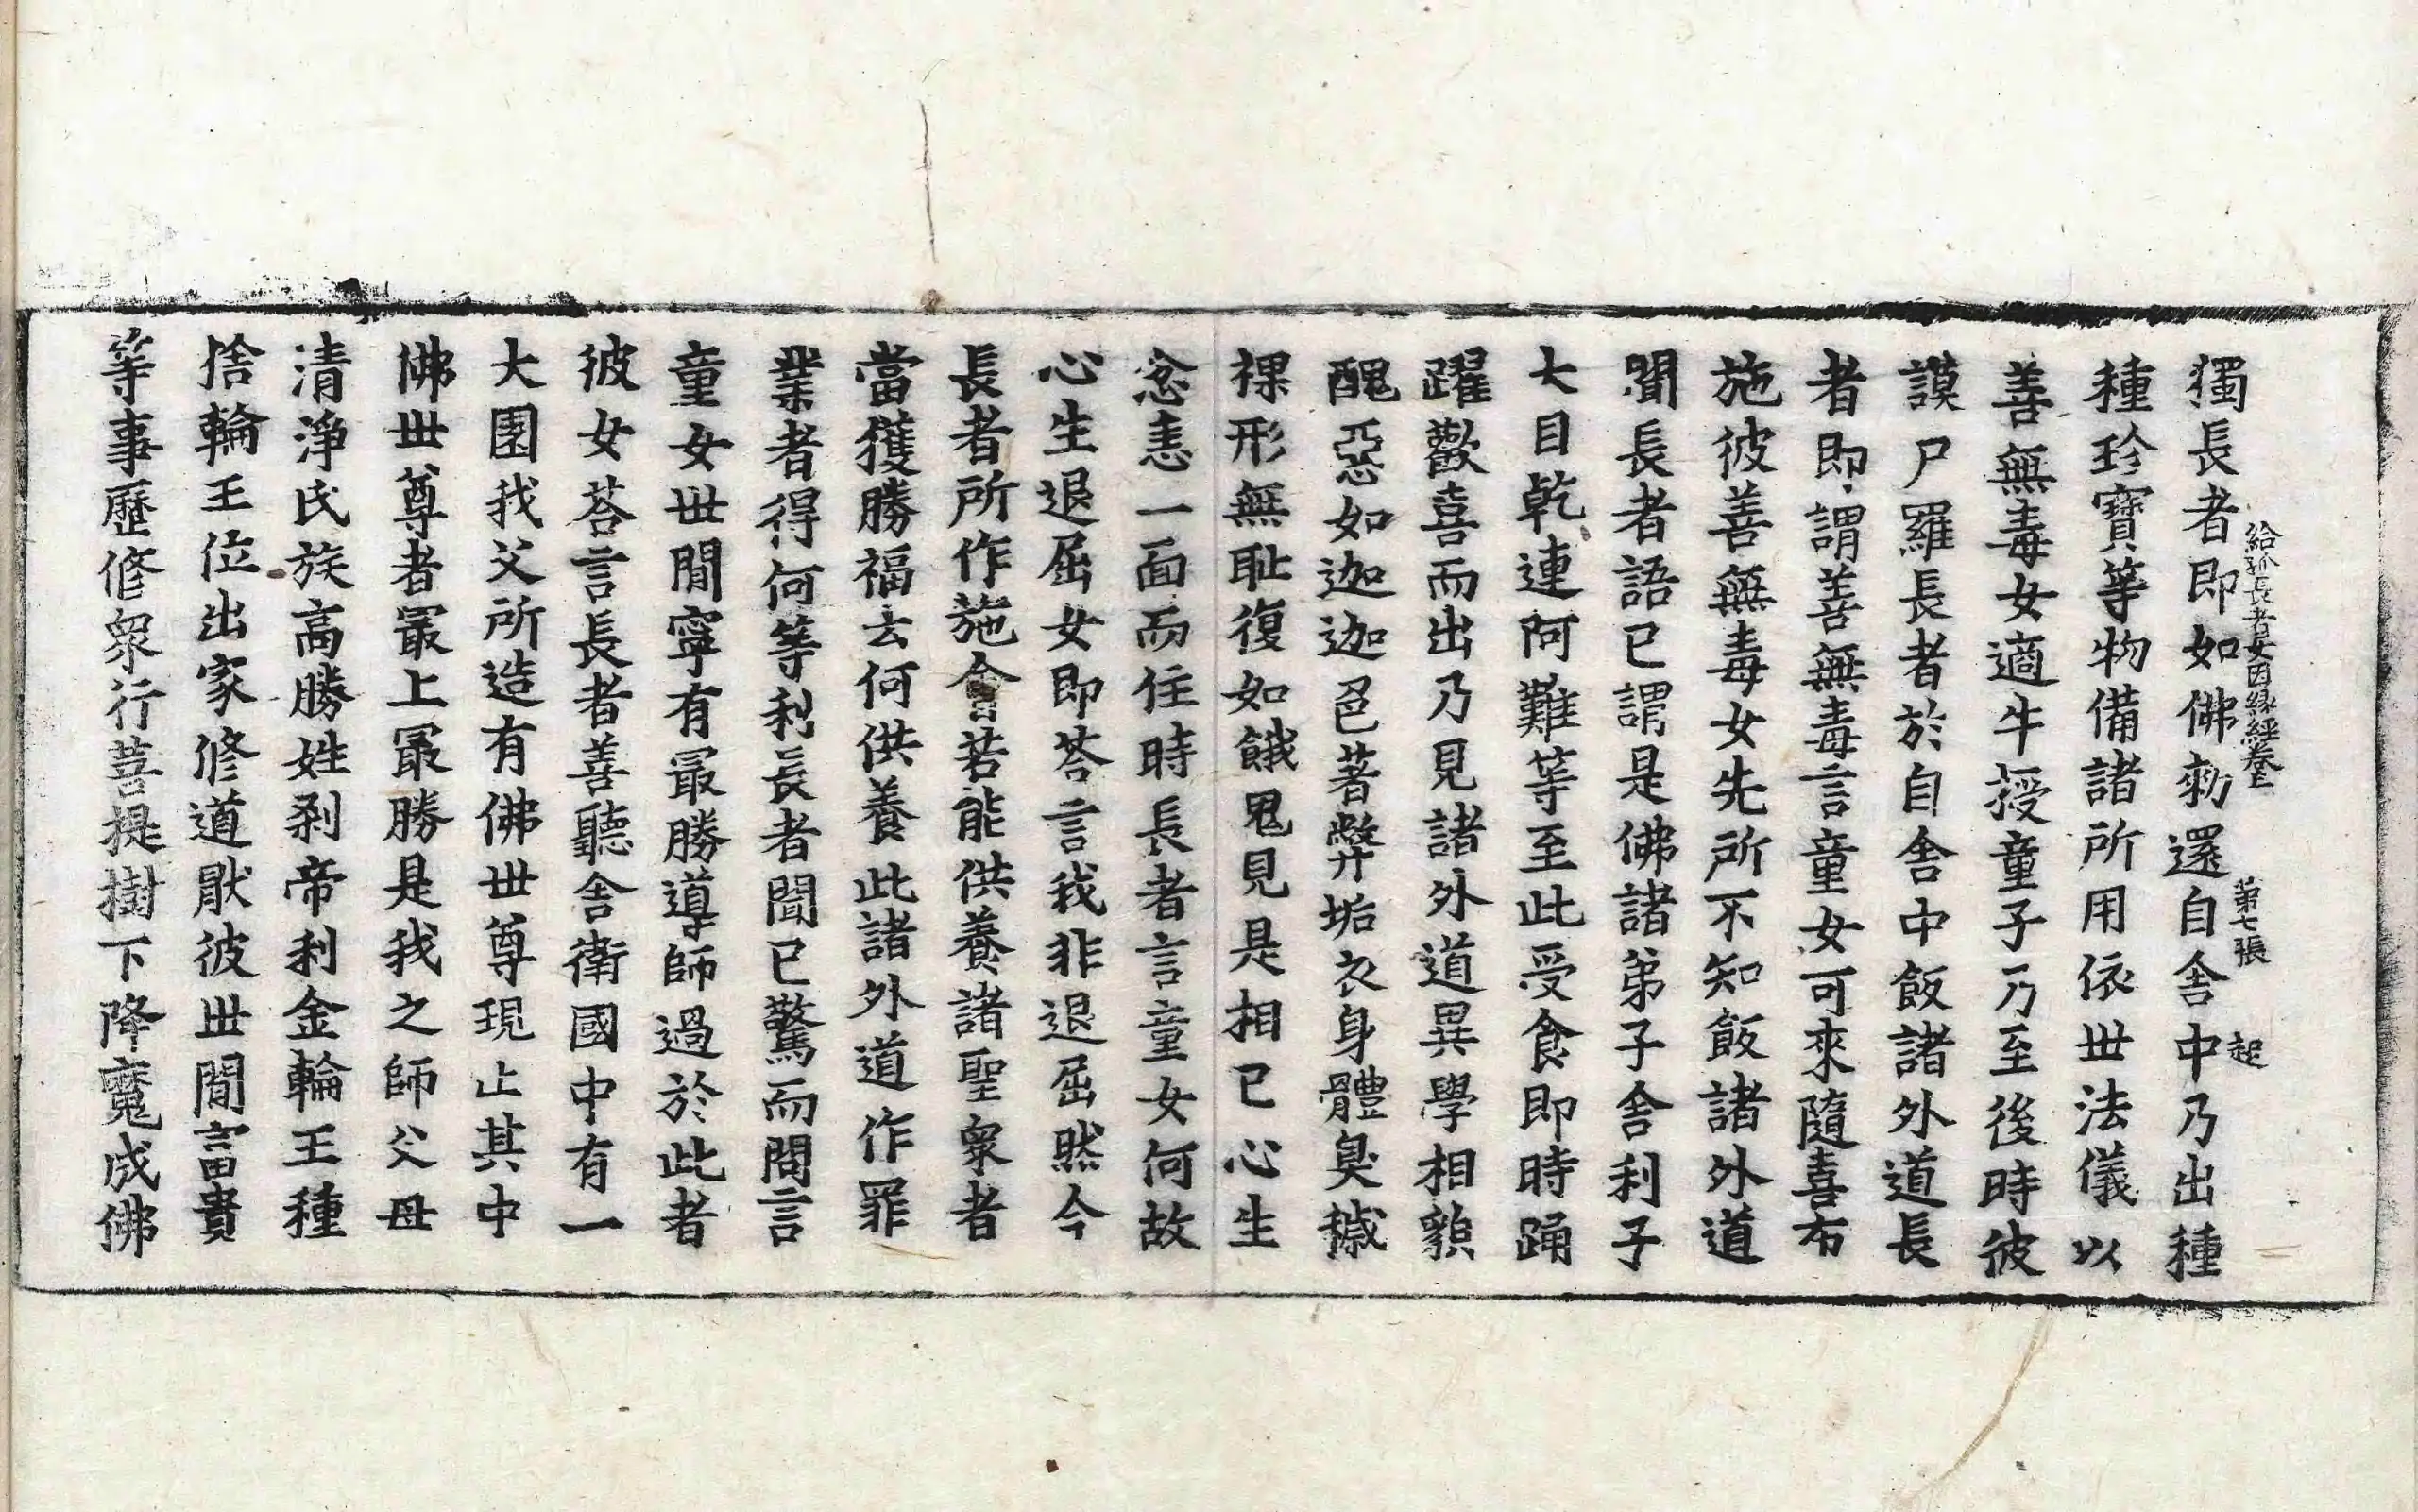 給孤長者女因緣經卷上 第七張 起
獨長者即如佛勑還自舍中乃出種
種珍寶等物備諸所用依世法儀以
善無毒女適牛授童子乃至後時彼
謨尸羅長者於自舍中飯諸外道長
者即謂善無毒言童女可來隨喜布
施彼善無毒女先所不知飯諸外道
聞長者語已謂是佛諸弟子舍利子
大目乾連阿難等至此受食即時踊
躍歡喜而出乃見諸外道異學相貌
醜惡如迦迦邑著弊垢衣身體臭穢
裸形無耻復如餓鬼見是相已心生
忿恚一面而住時長者言童女何故
心生退屈女即荅言我非退屈然今
長者所作施會若能供養諸聖衆者
當獲勝福云何供養此諸外道作罪
業者得何等利長者聞已驚而問言
童女世間寧有㝡勝導師過於此者
彼女荅言長者善聽舍衛國中有一
大園我父所造有佛世尊現止其中
佛世尊者㝡上㝡勝是我之師父母
清淨氏族高勝姓刹帝利金輪王種
捨輪王位出家修道猒彼世間富貴
等事歷修衆行菩提樹下降魔成佛